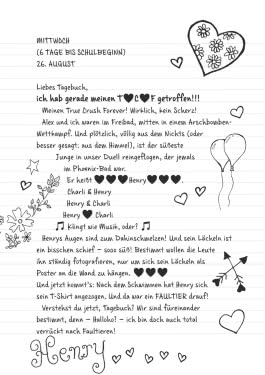 MITTWOCH
(6 TAGE BIS SCHULBEGINN)
26. AUGUST
Liebes Tagebuch,
ich hab gerade meinen T♥C♥F getroffen!!!
Meinen True Crush Forever! Wirklich, kein Scherz!
Alex und ich waren im Freibad, mitten in einem Arschbomben-
Wettkampf. Und plötzlich, völlig aus dem Nichts (oder
besser gesagt: aus dem Himmel), ist der süßeste
Junge in unser Duell reingeflogen, der jemals
im Phoenix-Bad war.
Er heißt ♥♥♥Henry♥♥♥.
Charli & Henry
Henry & Charli
Henry ♥ Charli
🎵 Klingt wie Musik, oder? 🎵
Henrys Augen sind zum Dahinschmelzen! Und sein Lächeln ist
ein bisschen schief – sooo süß! Bestimmt wollen die Leute
ihn ständig fotografieren, nur um sich sein Lächeln als
Poster an die Wand zu hängen. ♥♥♥
Und jetzt kommt's: Nach dem Schwimmen hat Henry sich
sein T-Shirt angezogen. Und da war ein FAULTIER drauf!
Verstehst du jetzt, Tagebuch? Wir sind füreinander
bestimmt, denn – Halloho! – ich bin doch auch total
verrückt nach Faultieren!
Henry